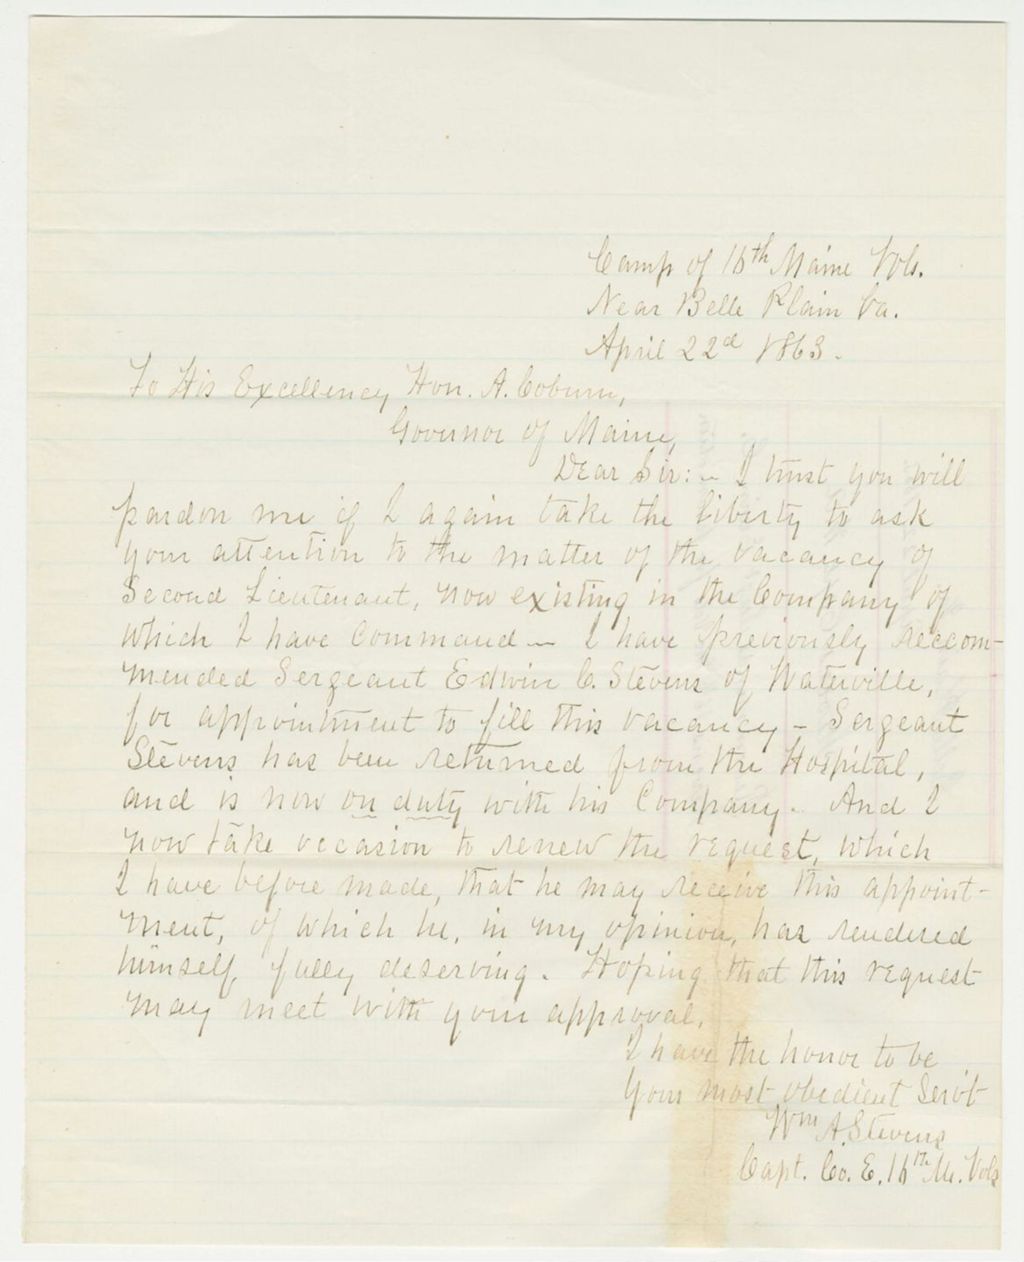 Camp of 16th Maine Vols.
Near Belle Plain Va.
April 22d 1863.
To His Excellency Hon. A. Coburn,
Governor of Maine,
Dear Sir:- I trust you will
pardon me if I again take the liberty to ask
your attention to the matter of the vacancy of
Second Lieutenant, now existing in the Company of
which I have Command- I have previously reccom-
mended Sergeant Edwin C. Stevens of Waterville,
for appointment to fill this vacancy - Sergeant
Stevens has been returned from the Hospital,
and is now on duty with his Company. And I
now take occasion to renew the request, which
I have before made, that he may receive this appoint-
ment, of which he, in my opinion, has rendered
himself, fully deserving. Hoping that this request
may meet with your approval,
I have the honor to be
Your most obedient Serv't
Wm A. Stevens
Capt. Co. E. 16th Me. Vols